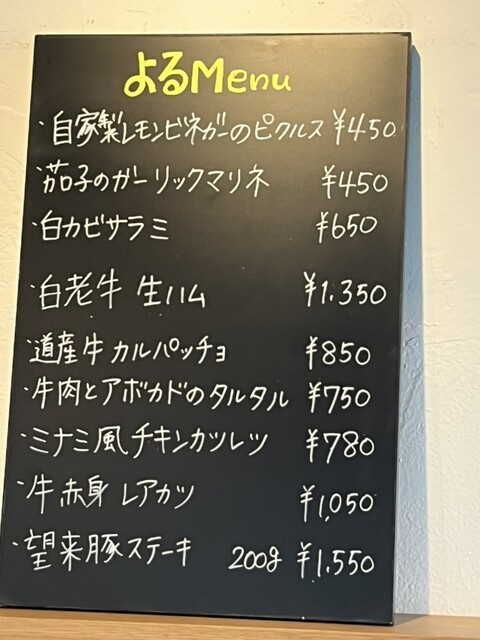 よるMenu
・自家製レモンビネガーのピクルス ¥450
・茄子のガーリックマリネ ¥450
・白カビサラミ ¥650
・白老牛 生ハム ¥1.350
・道産牛カルパッチョ ¥850
・牛肉とアボカドのタルタル ¥750
・ミナミ風チキンカツレツ ¥780
・牛赤身 レアカツ ¥1,050
・望来豚ステーキ 200g ¥1.550